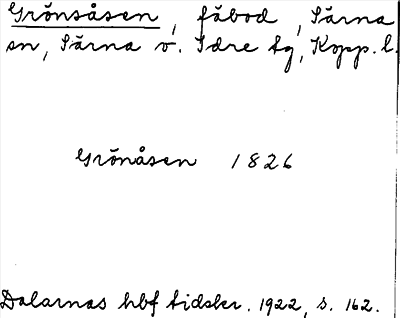 Grönsåsen, fäbod, Särna
sn, Särna o. Idre tg, Kopp. l.
Grönåsen 1826
Dalarnas hbf tidskr. 1922, s. 162.